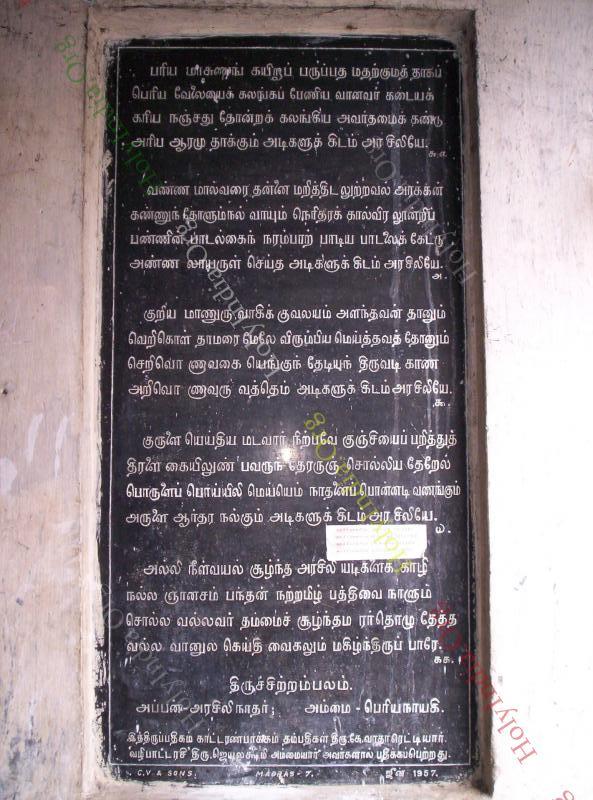 பரிய மாசுணங் கயிறாப் பருப்பத மதற்குமத் தாகப்
பெரிய வேலையைக் கலங்கப் பேணிய வானவர் கடையக்
கரிய நஞ்சது தோன்றக் கலங்கிய அவர்தமைக் கண்டு
அரிய ஆரமு தாக்கும் அடிகளுக் கிடம் அர சிலியே.
வண்ண மால்வரை தன்னை மறித்திட லுற்றவல் அரக்கன்
கண்ணுந் தோளும்நல் வாயும் நெரிதரக் கால்விர லூன்றிப்
பண்ணின் பாடல்கைந் நரம்பாற் பாடிய பாடலைக் கேட்டு
அண்ண லாயருள் செய்த அடிகளுக் கிடம் அரசிலியே.
அ.
குறிய மாணுரு வாகிக் குவலயம் அளந்தவன் தானும்
வெறிகொள் தாமரை மேலே விரும்பிய மெய்த்தவத் தோனும்
செறிவொ ணாவகை யெங்குந் தேடியுந் திருவடி காண
அறிவொ ணாவுரு வத்தெம் அடிகளுக் கிடம் அரசிலியே.
கூ.
குருளை யெய்திய மடவார் நிற்பவே குஞ்சியைப் பறித்துத்
திரளை கையிலுண் பவருந் தேரருஞ் சொல்லிய தேறேல்
பொருளைப் பொய்யிலி மெய்யெம் நாதனைப் பொன்னடி வணங்கும்
அருளை ஆர்தர நல்கும் அடிகளுக் கிடம் அர சிலியே.
ஓ
அல்லி நீள்வயல் சூழ்ந்த அரசிலி யடிகளைக் காழி
நல்ல ஞானசம் பந்தன் நற்றமிழ் பத்திவை நாளும்
சொல்ல வல்லவர் தம்மைச் சூழ்ந்தம ரர்தொழு தேத்த
வல்ல வானுல கெய்தி வைகலும் மகிழ்ந்திருப் பாரே.
கக.
திருச்சிற்றம்பலம்.
அப்பன்-அரசிலிநாதர்; அம்மை - பெரியநாயகி.
இத்திருப்பதிகம் தம்பதிகள் திரு.
வழிபாட்டரசி திரு. அம்மையார் அவர்களால் பதிக்கப்பெற்றது.
C.V & SONS, MADRAS-7. ஜூன் 1957.
HolyIndia.Org
HolyIndia.Org
HolyIndia.Org
HolyIndia.Org
HolyIndia.Org
HolyIndia.Org